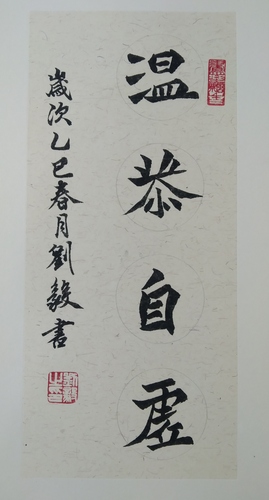 温恭自虚
歲次乙巳春月劉毅書